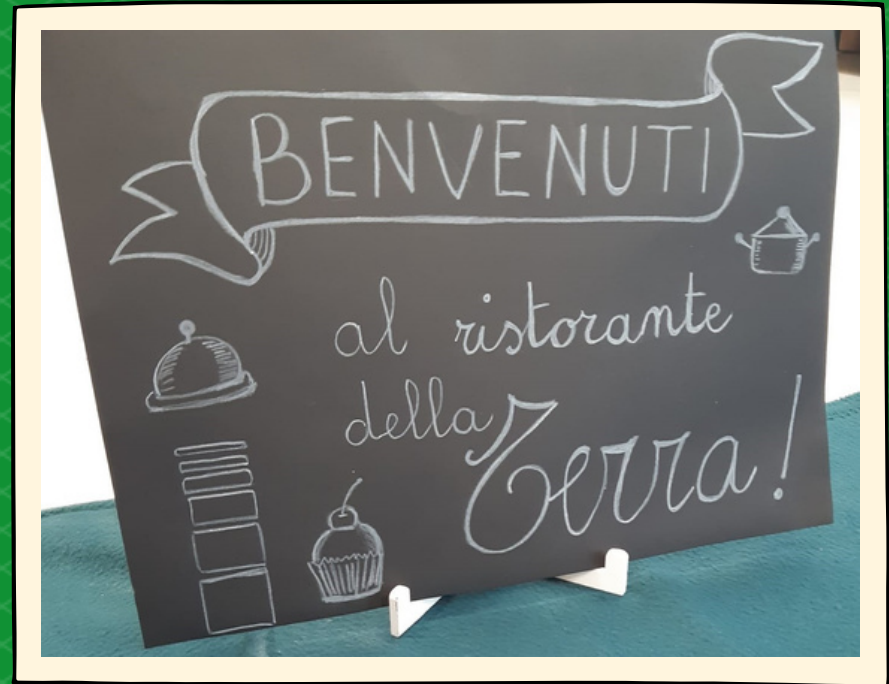 BENVENUTI
al ristorante
della Terra!